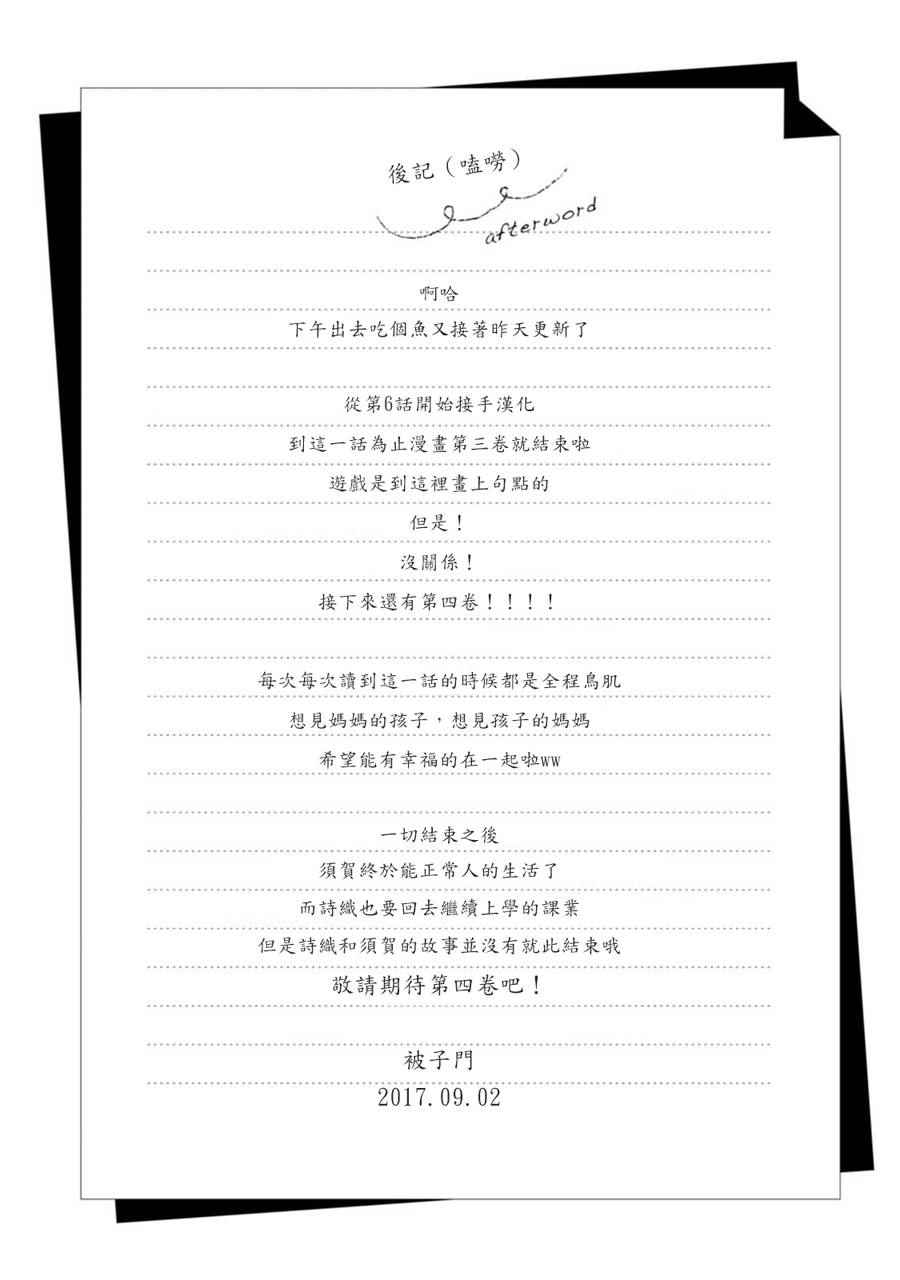 後記（嗑嘮）
afterword
啊哈
下午出去吃個魚又接著昨天更新了
從第6話開始接手漢化
到這一話為止漫畫第三卷就結束啦
遊戲是到這裡畫上句點的
但是！
沒關係！
接下來還有第四卷！！！！
每次每次讀到這一話的時候都是全程鳥肌
想見媽媽的孩子，想見孩子的媽媽
希望能有幸福的在一起啦ww
一切結束之後
須賀終於能正常人的生活了
而詩織也要回去繼續上學的課業
但是詩織和須賀的故事並沒有就此結束哦
敬請期待第四卷吧！
被子門
2017.09.02